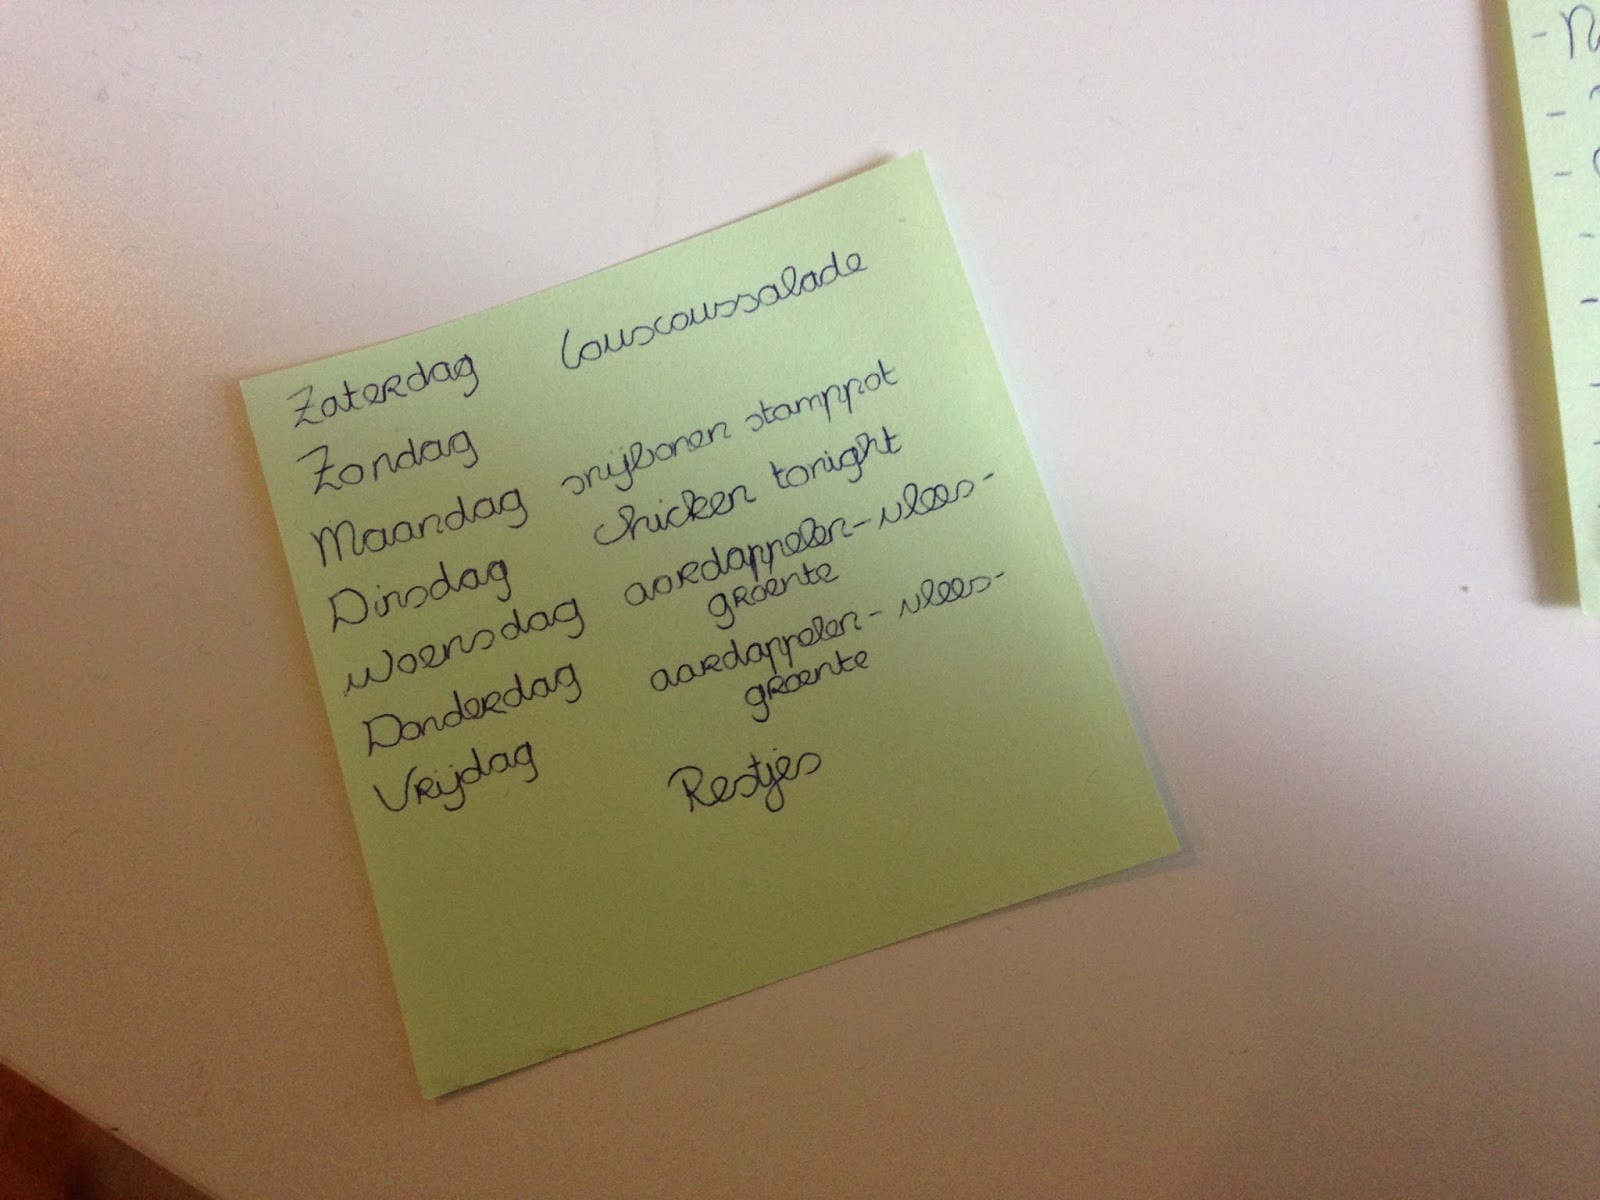 Zaterdag Couscoussalade
Zondag
Maandag snijbonen stamppot
Dinsdag chicken tonight
Woensdag aardappelen-vlees-
groente
Donderdag aardappelen-vlees-
groente
Vrijdag Restjes